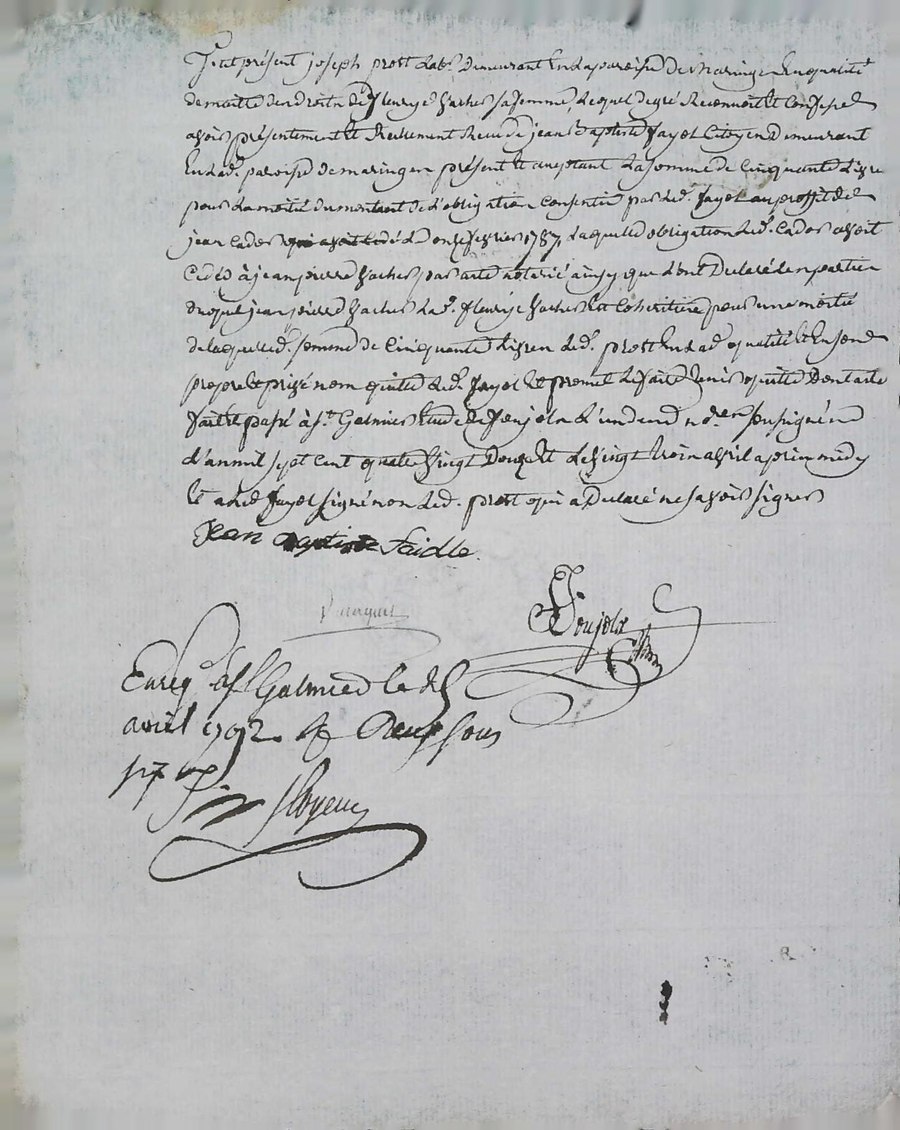 fut présent joseph prost lab.r demeurant En la paroisse de maringe En qualité
de maitre des droits de fleurye vacher sa femme, Lequel de gré Reconnoit et Confesse
avoir présentement et Réelement Reçu de jean Baptiste fayol Citoyen demeurant
En lad.e paroisse de maringe présent et aceptant La somme de Cinquante livres
pour La moitié du montant de L'obligation Consentie par led.t fayol au proffit de
jean Cador qui avoit cedé Le onze fevrier 1787, Laquelle obligation led.t Cador avoit
Cedée à jean pierre vacher par acte notarié ainsy que L'ont Declaré les parties
duquel jean pierre vacher lad.e fleurye vacher Est Coheritiere pour une moitié
de laquelle d.e somme de Cinquante Livres led.t prost En lad.e qualité et En son
propre et privé nom quitte led.t fayol et promet Le faire tenir quitte Dont acte
fait et passé à S.t Galmier Etude de L'un des no.res soussignés
L'an mil sept cent quatre vingt Douze et Le vingt trois avril après midy
Et a led. fayol signé non led.t prost qui a Declaré ne savoir signer
Jean baptiste Faidle
Enreg.é à S.t Galmier le
avril 1792. R. Douze sous